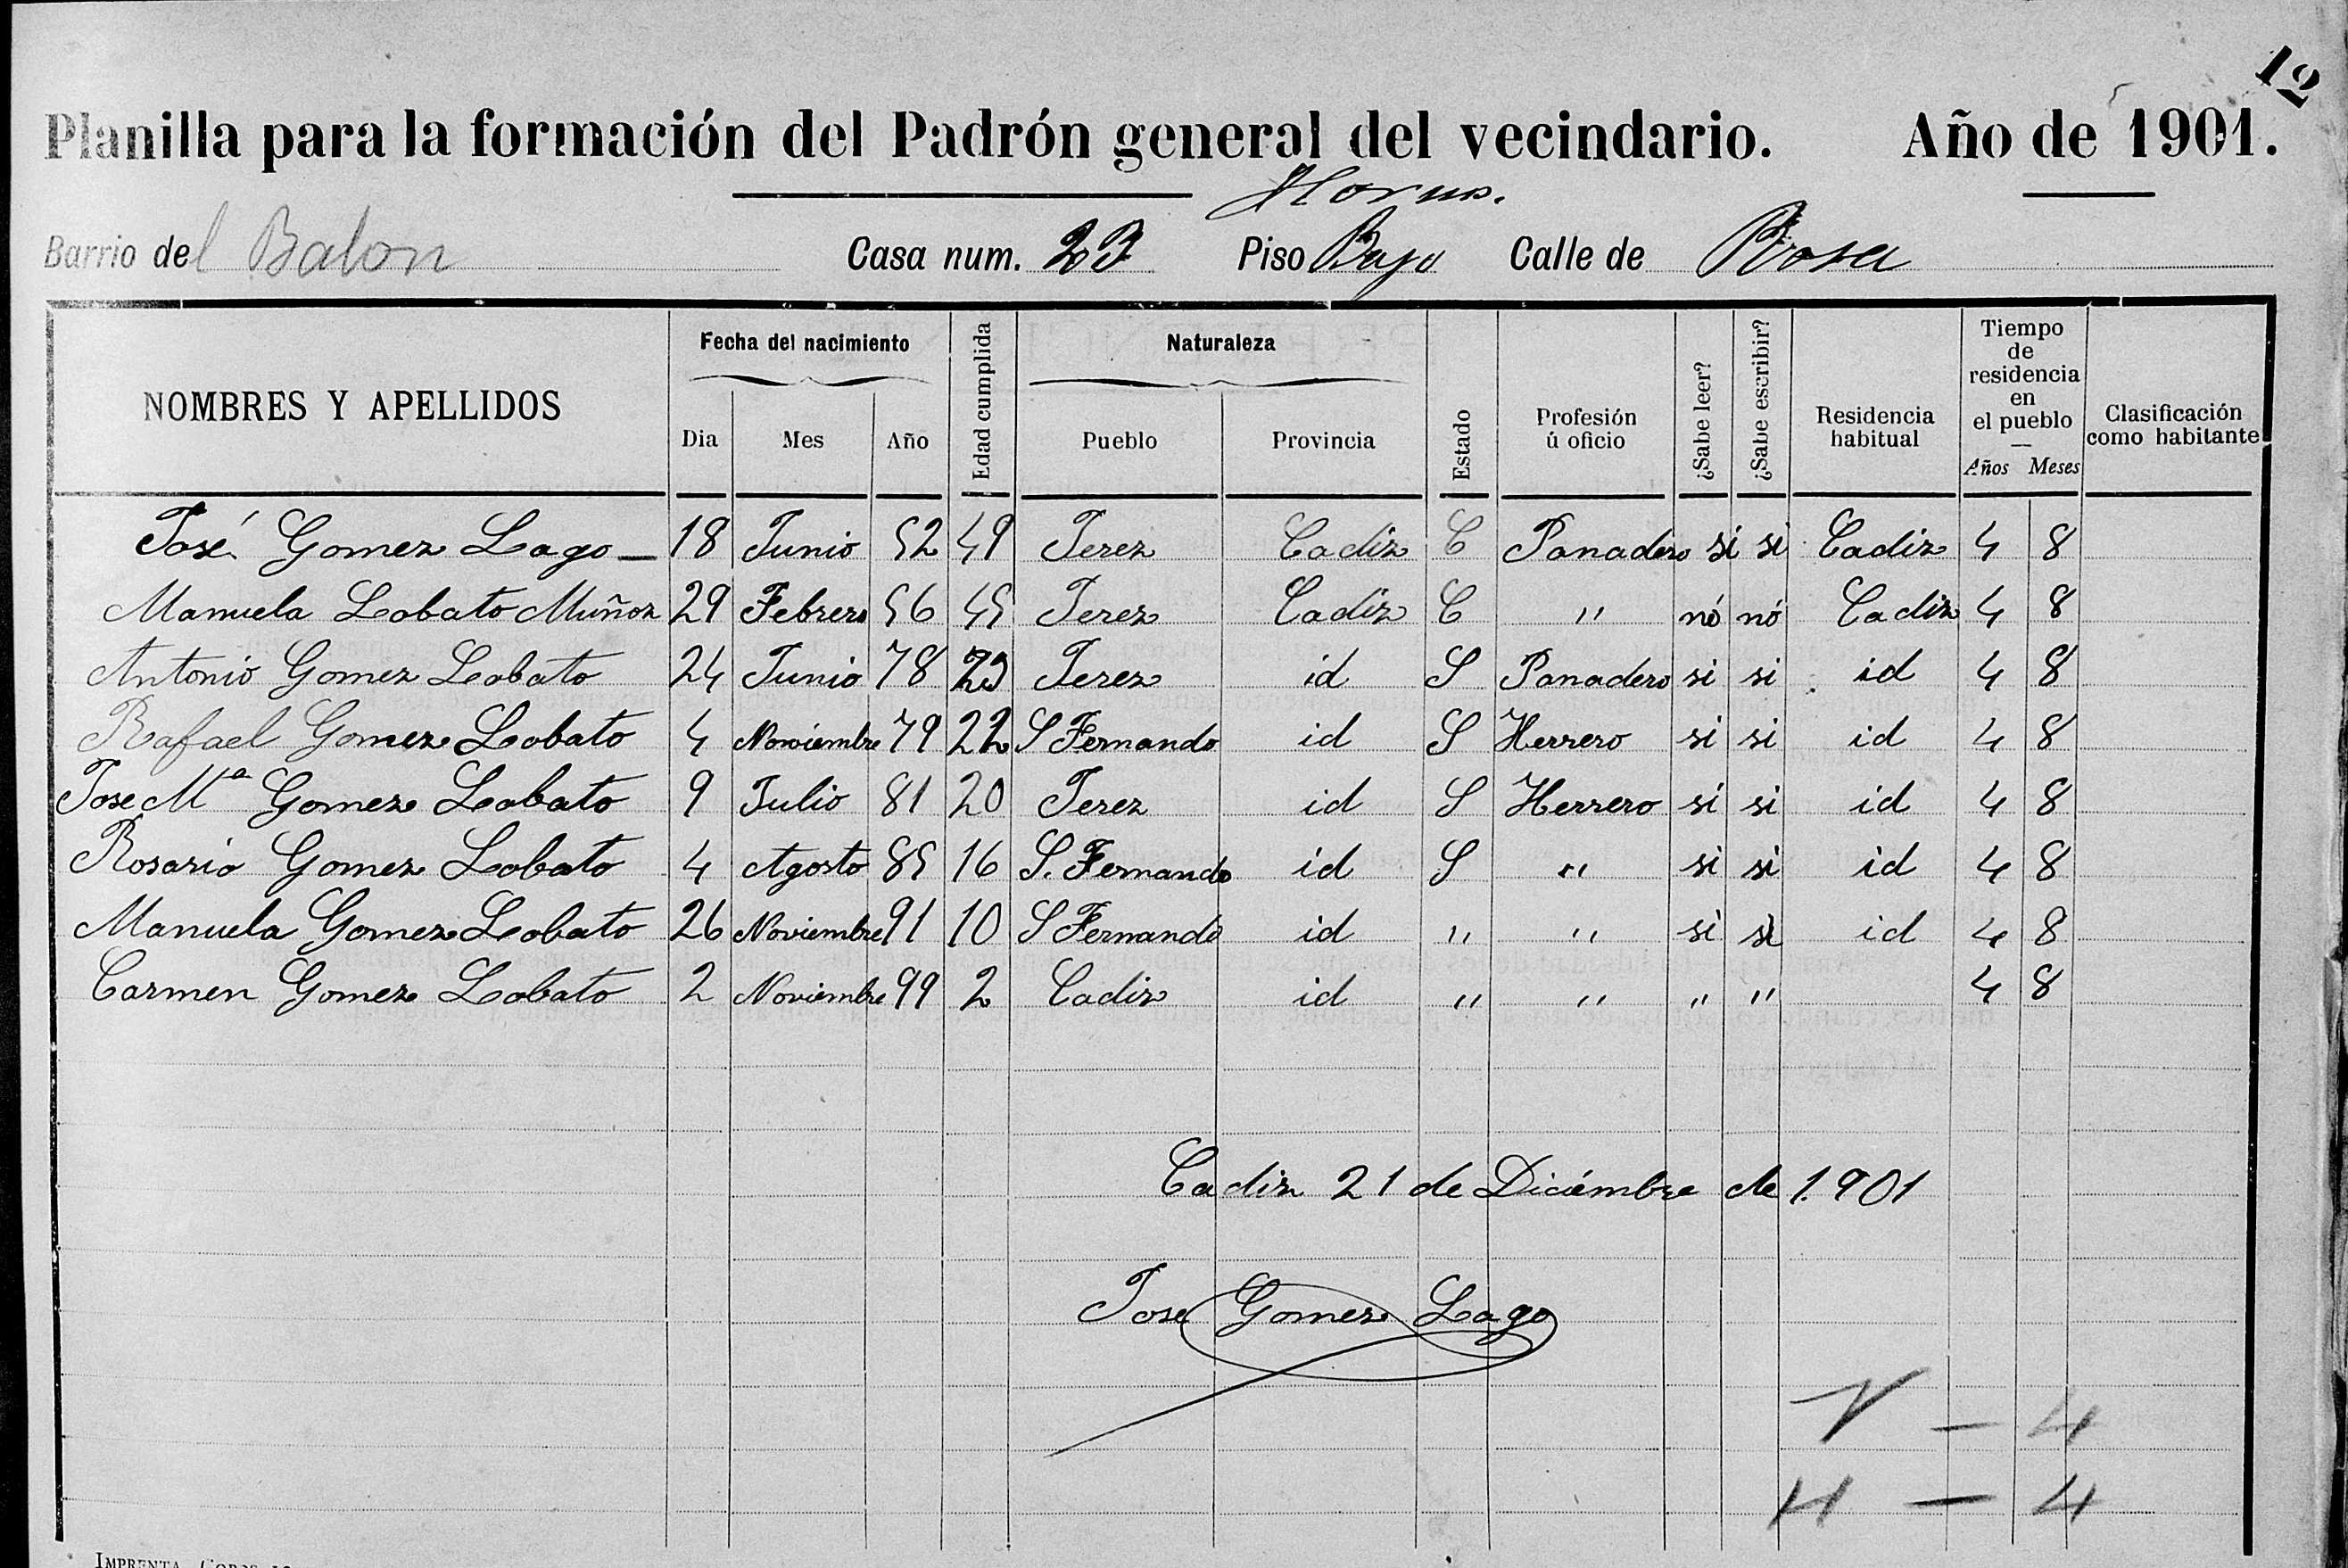 12
Planilla para la formación del Padrón general del vecindario. Año de 1901.
Horno.
Barrio del Balon Casa num. 23 Piso Bajo Calle de Rosa
NOMBRES Y APELLIDOS Fecha del nacimiento Dia Mes Año Edad cumplida Naturaleza Pueblo Provincia Estado Profesión ú oficio ¿Sabe leer? ¿Sabe escribir? Residencia habitual Tiempo de residencia en el pueblo — Años Meses Clasificación como habitante
José Gomez Lago — 18 Junio 52 49 Jerez Cadiz C Panadero si si Cadiz 4 8
Manuela Lobato Muñoz 29 Febrero 56 45 Jerez Cadiz C " nó nó Cadiz 4 8
Antonio Gomez Lobato 24 Junio 78 23 Jerez id S Panadero si si id 4 8
Rafael Gomez Lobato 4 Noviembre 79 22 S Fernando id S Herrero si si id 4 8
Jose Mª Gomez Lobato 9 Julio 81 20 Jerez id S Herrero si si id 4 8
Rosario Gomez Lobato 4 Agosto 85 16 S. Fernando id S " si si id 4 8
Manuela Gomez Lobato 26 Noviembre 91 10 S Fernando id " " si si id 4 8
Carmen Gomez Lobato 2 Noviembre 99 2 Cadiz id " " " " 4 8
Cadiz 21 de Diciémbre de 1.901
Jose Gomez Lago
V — 4
H — 4
IMPRENTA